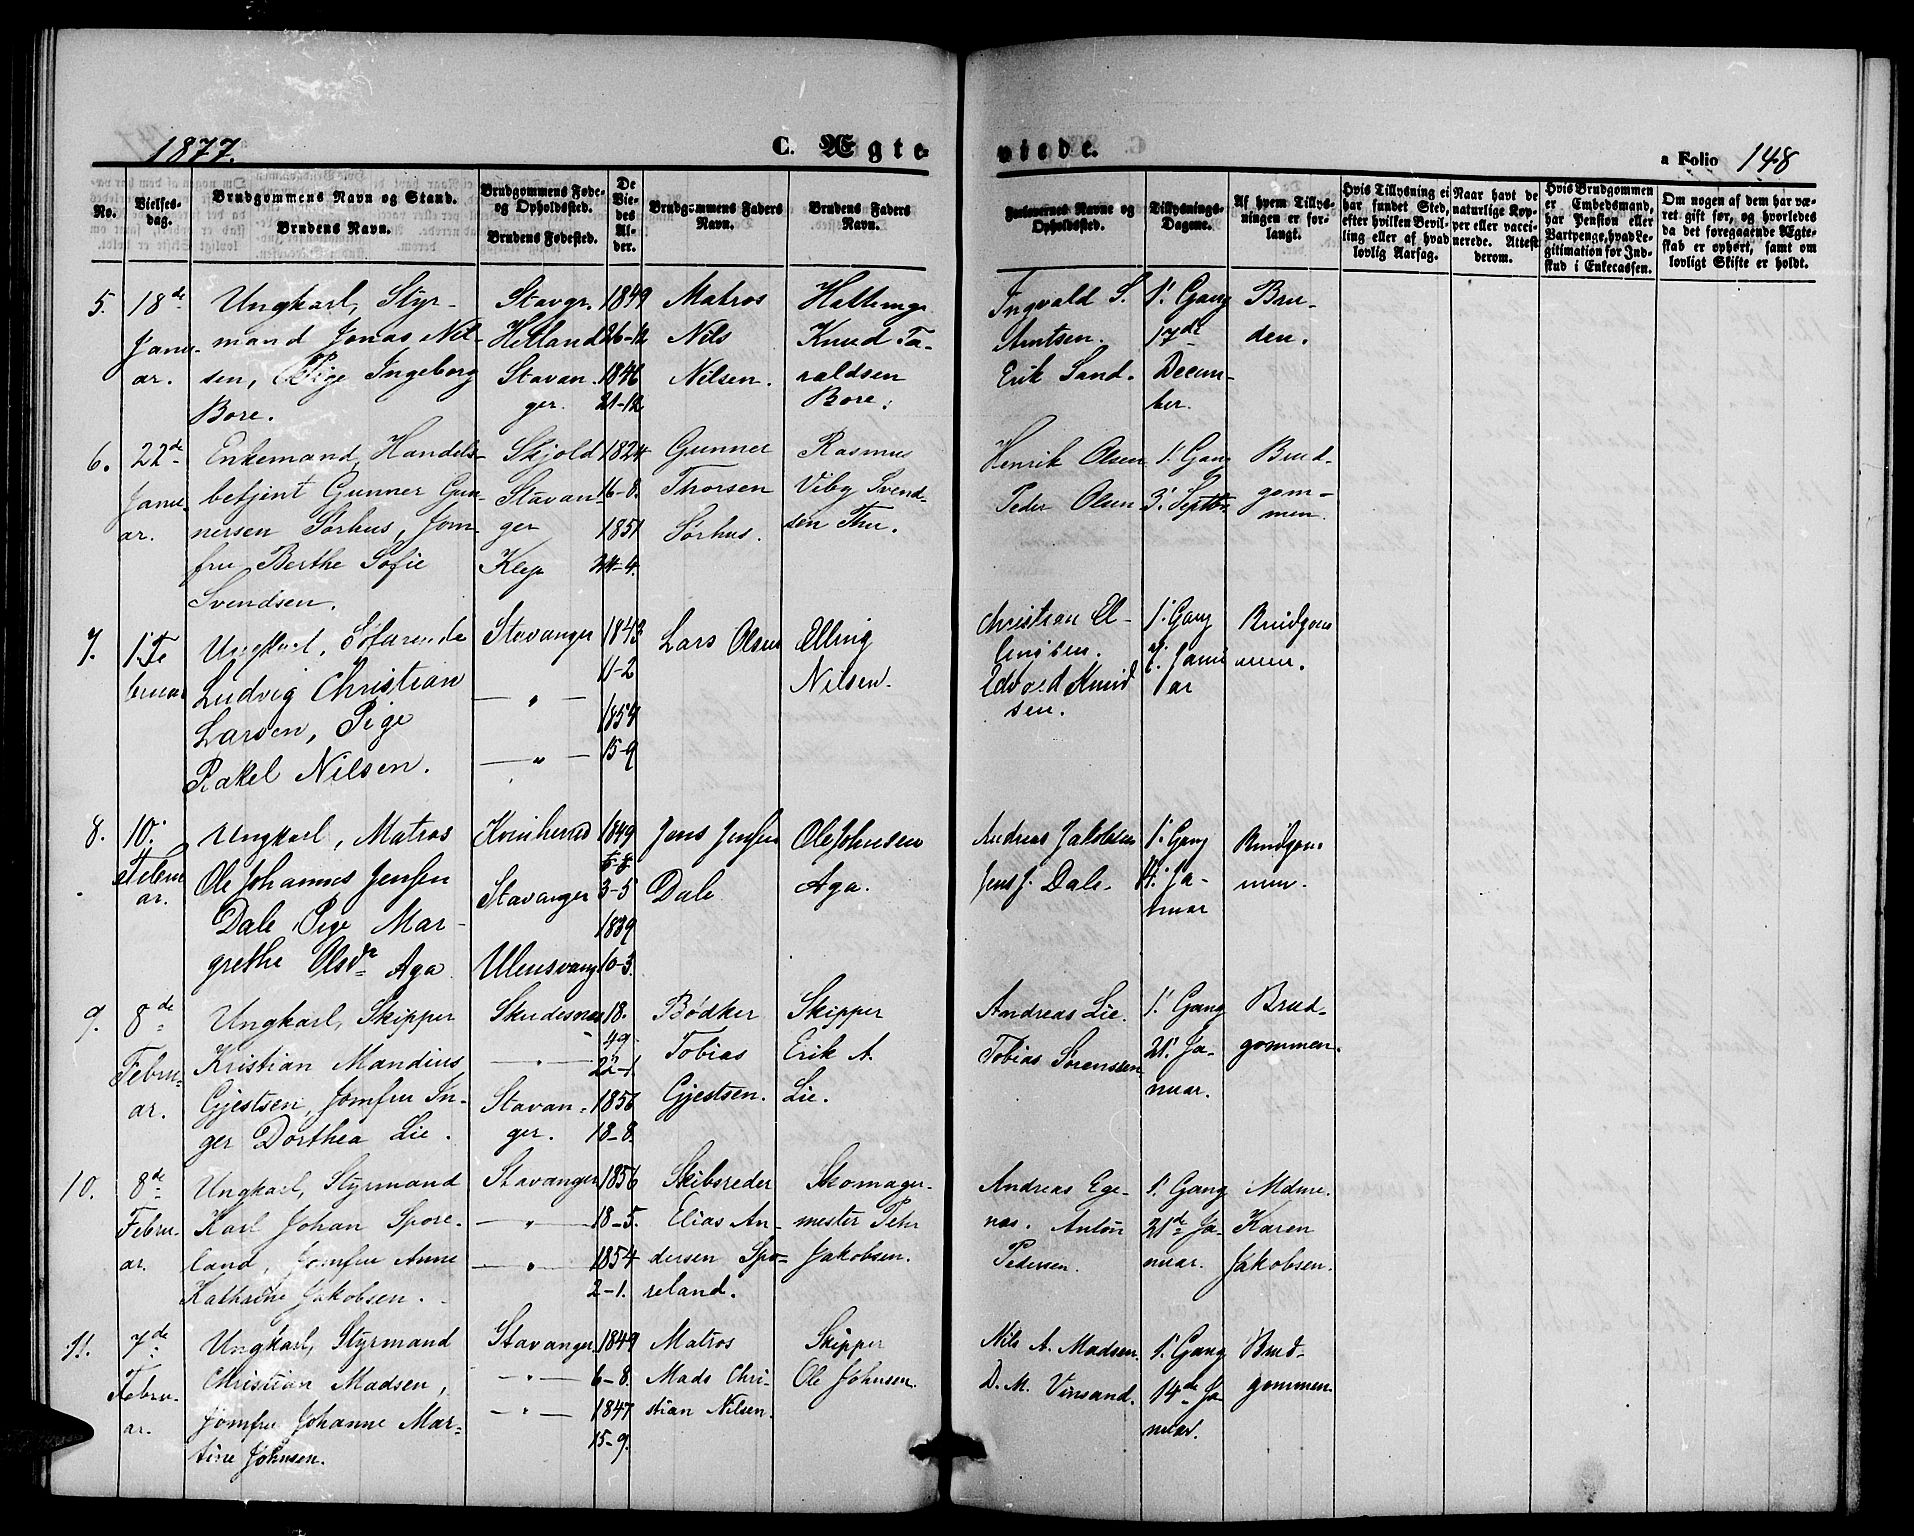 1877.
C. Ægte-
viede.
a Folio 148
No.
Vielses-
dag.
Brudgommens Navn og Stand.
Brudens Navn.
Brudgommens Føde-
og Opholdssted.
Brudens Fødested.
De
Vie-
des
Al-
der.
Brudgommens Faders
Navn.
Brudens Faders
Navn.
Forlovernes Navne og
Opholdssted.
Tillysnings-
Dagene.
Af hvem Tillys-
ningen er for-
langt.
Hvis Tillysning ei
har fundet Sted,
efter hvilken Bevil-
ling eller af hvad
lovlig Aarsag.
Naar havt de
naturlige Kop-
per eller vacci-
nerede. Attest
derom.
Hvis Brudgommen
er Embedsmand,
har Pension eller
Vartpenge, hvad Le-
gitimation for Ind-
skud i Enkecassen.
Om nogen af dem har væ-
ret gift før, og hvorledes
da det foregaaende Ægte-
skab er ophørt, samt om
lovligt Skifte er holdt.
5.
18de
Janu-
ar.
Ungkarl, Styr-
mand Jonas Nil-
sen, Pige Ingeborg
Bore.
Stavgr.
Hetland
Stavan-
ger.
1849
26-12
1846
21-12
Matros
Nils
Nilsen.
Knud Ta-
raldsen
Bore.
Ingvald S.
Amtsen.
Erik Sand.
1' Gang
17de
Decem-
ber.
Bru-
den.
6.
22de
Janu-
ar.
Enkemand, Handels-
betjent Gunner Gun-
nersen Sørhus, Jom-
fru Berthe Sofie
Svendsen.
Skjold
Stavan-
ger
Klep
1824
16-8.
1851
24-4.
Gunner
Thorsen
Sørhus.
Rasmus
Viby Svend-
sen Thu.
Henrik Olsen
Peder Olsen
1' Gang
3' Septbr.
Brud-
gom-
men.
7.
1' Fe
bruar
Ungkarl, Søfarende
Ludvig Christian
Larsen, Pige
Rakel Nilsen.
Stavanger
— " —
— " —
1843
11-2
1854
15-9
Lars Olsen
Elling
Nilsen.
Christian El-
lingsen.
Edvard Knud
sen.
1' Gang
7' Janu
ar
Brudgom
men.
8.
10'
Febru
ar.
Ungkarl, Matros
Ole Johannes Jensen
Dale, Pige Mar-
grethe Olsdr Aga
Kvinherad
Stavanger
Ulensvang
1849
3-5
1839
10-3.
Jens Jensen
Dale
Ole Johnsen
Aga.
Andreas Jakobsen
Jens J. Dale.
1' Gang
14' Ja-
nuar
Brudgom
men.
9.
8de
Febru-
ar.
Ungkarl, Skipper
Kristian Mandius
Gjestsen, Jomfru In-
ger Dorthea Lie.
Skudesnes
— " —
Stavan-
ger.
18.
49.
22-1
1856
18-8.
Bødker
Tobias
Gjestsen.
Skipper
Erik A.
Lie.
Andreas Lie.
Tobias Sørensen
1' Gang
21' Ja-
nuar.
Brud-
gommen.
10.
8de
Febru-
ar.
Ungkarl, Styrmand
Karl Johan Spore-
land, Jomfru Anne
Kathrine Jakobsen.
Stavanger
— " —
— " —
1856
18-5.
1854
2-1.
Skibsreder
Elias An-
dersen Spo-
reland.
Skomager-
mester Pehr
Jakobsen.
Andreas Ege-
nes. Anton
Pedersen.
1' Gang
21de Ja-
nuar.
Mdme.
Karen
Jakobsen.
11.
7de
Febru-
ar.
Ungkarl, Styrmand
Christian Madsen,
Jomfru Johanne Mar-
tine Johnsen.
Stavanger
— " —
— " —
1849
6-8.
1847
15-9.
Matros
Mads Chri-
stian Nilsen.
Skipper
Ole Johnsen.
Nils A. Madsen.
D. M. Vinsand.
1' Gang
14de Ja-
nuar.
Brud-
gommen.